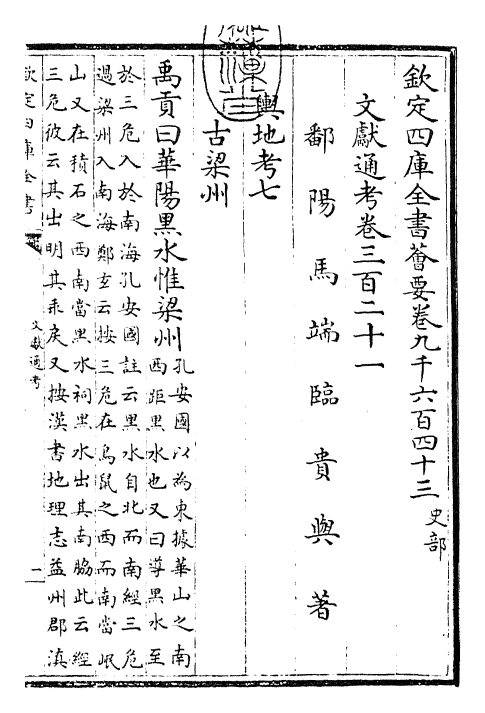 欽定四庫全書薈要卷九千六百四十三 史部
文獻通考卷三百二十一
鄱陽馬端臨貴與著
輿地考七
古梁州
禹貢曰華陽黑水惟梁州孔安國以為東據華山之南
西距黑水也又曰導黑水至
於三危入於南海孔安國註云黑水自北而南經三危
過梁州入南海鄭玄云按三危在鳥鼠之西而南當岷
山又在積石之西南當黑水祠黑水出其南脇此云經
三危彼云其出明其乖戾又按漢書地理志益州郡滇
欽定四庫全書
文獻通考
一